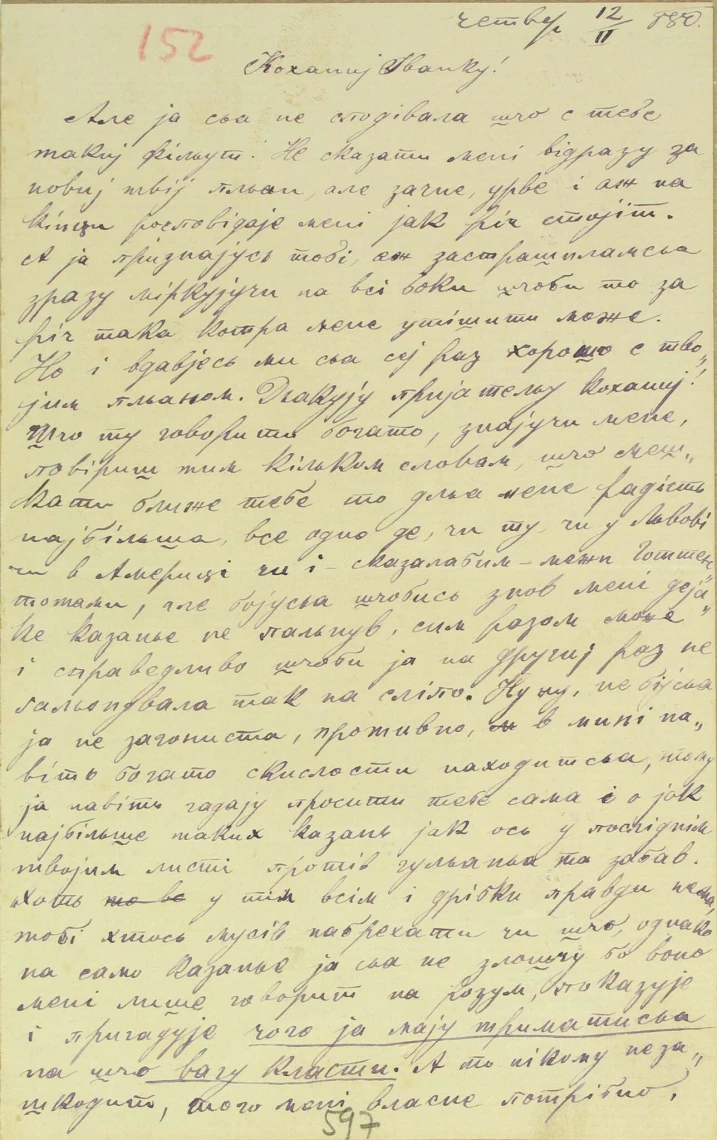 четвер 12/II 880.
152
Коханиј Іванку!
Але ја сьа не сподівала шчо с тебе
такиј фільут. Не сказати мені відразу за
новиј твіј пльан, але зачне, урве і аж на
кінци росповідаје мені јак річ стојіт.
А ја признајусь тобі, аж застрашиламсьа
зразу міркујучи на всі боки шчоби то за
річ така котра мене утішити може.
Но і вдавјесь ми сьа сеј раз хорошо с тво„
јим пльаном. Дьакују пријательу коханиј!
Шчо ту говорити богато, знајучи мене,
повіриш тим кільком словам, шчо меш„
кати ближе тебе то дльа мене радість
најбільша, все одно де, чи ту, чи у Львові
чи в Америці чи і – сказалабим – межи Готтен„
тотами, але бојусьа шчобись знов мені деја„
ке казанье не пальнув, сим разом може
і справедливо шчоби ја на другиј раз не
гальопувала так на сліпо. Ну ну, не бījсьа
ја не загониста, противно, в мині на„
віть богато скислости находитсьа, тому
ја навіть гадају просити тебе сама о јак
најбільше таких казань јак ось у послідним
твојим листі протів гульаньа та забав.
Хоть у тім всім і дрібки правди нема,
тобі хтось мусів набрехати чи шчо, однако
на само казанье ја сьа не злошчу бо воно
мені лише говорит на розум, показује
і пригадује чого ја мају триматисьа
на шчо вагу класти. А то нікому неза„
шкодит, того мені власне потрібно,
597